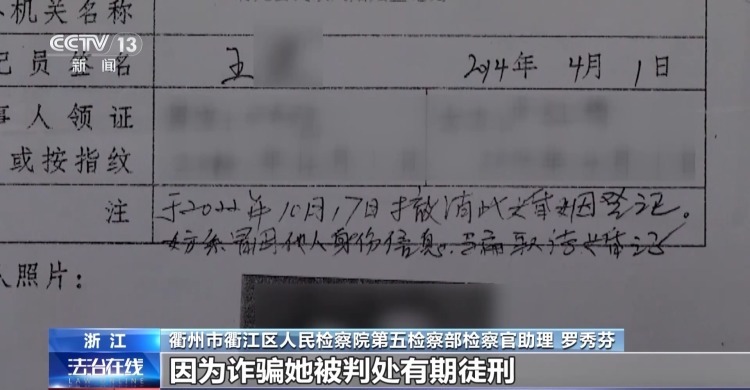 机关名称
CCTV 13
新闻
记员签名 王 2014年 4月 1日
事人领证
或按指纹
注 于2022年10月17日撤消此婚姻登记。
女方系冒用他人身份信息。骗取结婚登记
人照片:
浙江 衢州市衢江区人民检察院第五检察部检察官助理 罗秀芬
法治在线 因为诈骗她被判处有期徒刑